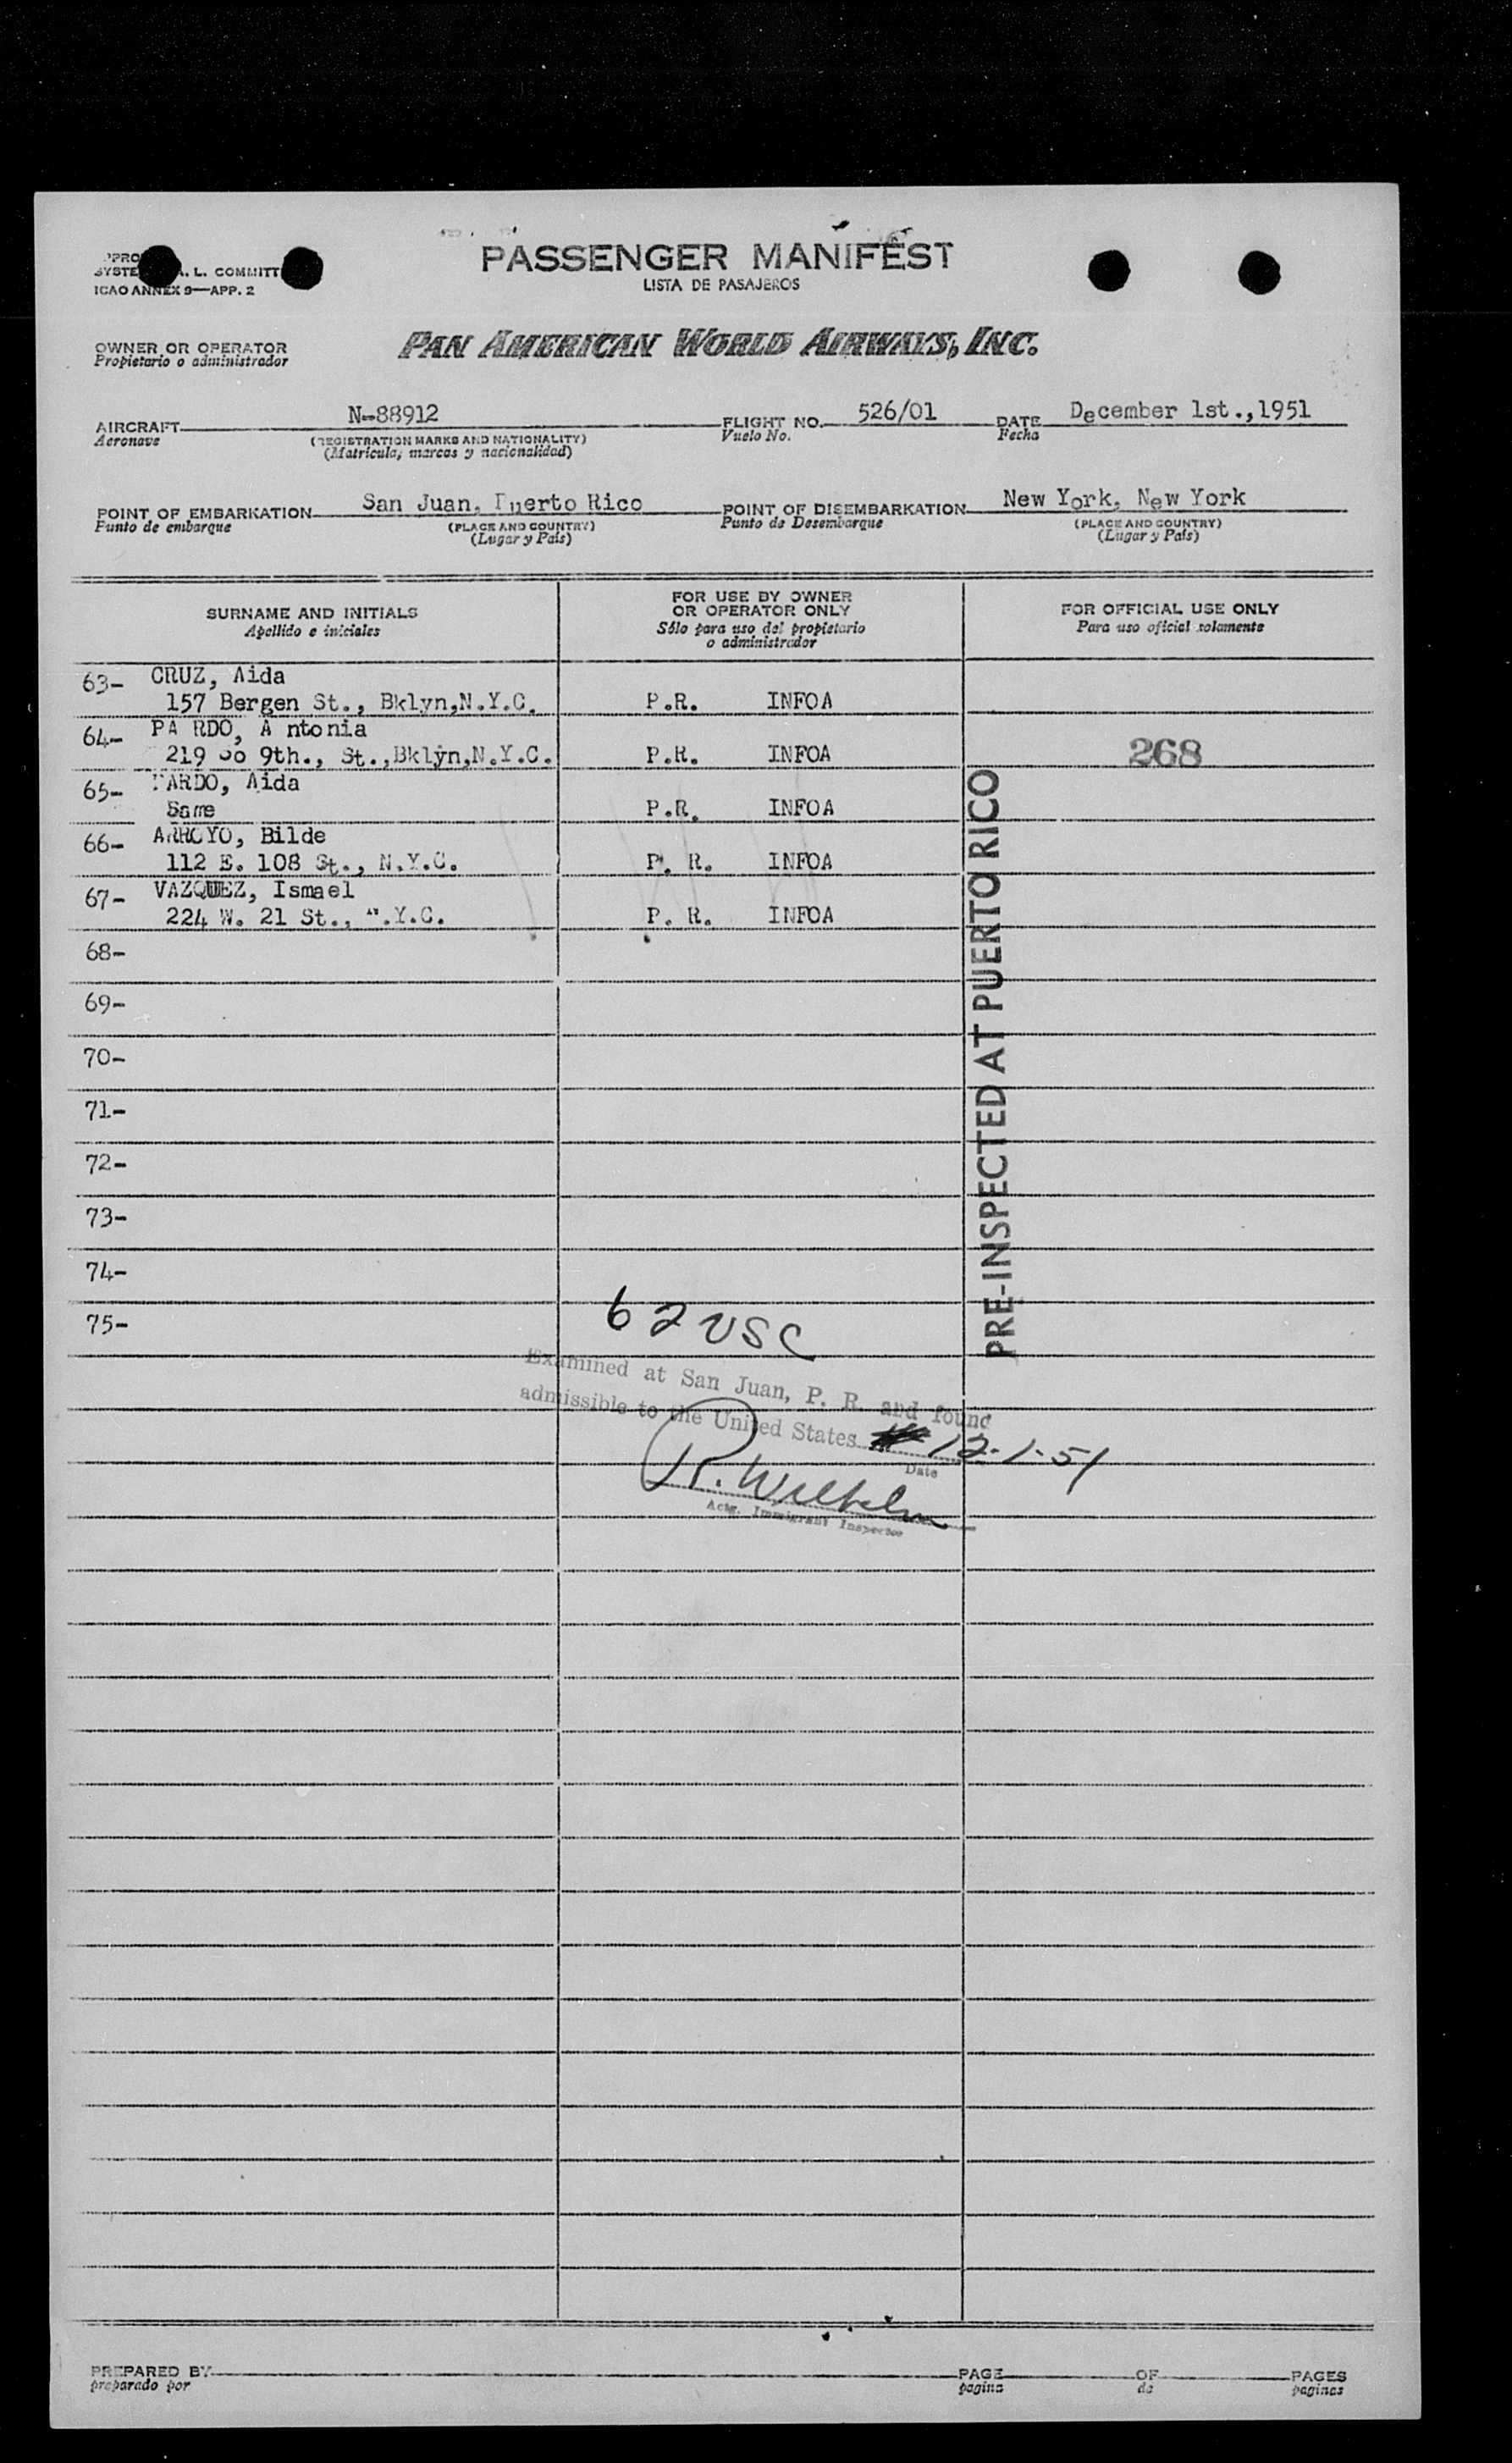 PASSENGER MANIFEST
LISTA DE PASAJEROS
A. L. COMMITT
ICAO ANNEX 9—APP. 2
OWNER OR OPERATOR
Propietario o administrador
PAN AMERICAN WORLD AIRWAYS, INC.
AIRCRAFT N-88912 FLIGHT NO. 526/01 DATE December 1st.,1951
Aeronave (REGISTRATION MARKS AND NATIONALITY) Vuelo No. Fecha
(Matrícula, marcas y nacionalidad)
POINT OF EMBARKATION San Juan, Puerto Rico POINT OF DISEMBARKATION New York, New York
Punto de embarque (PLACE AND COUNTRY) Punto de Desembarque (PLACE AND COUNTRY)
(Lugar y País) (Lugar y País)
SURNAME AND INITIALS FOR USE BY OWNER OR OPERATOR ONLY FOR OFFICIAL USE ONLY
Apellido e iniciales Sólo para uso del propietario o administrador Para uso oficial solamente
63- CRUZ, Aida
157 Bergen St., Bklyn,N.Y.C. P.R. INFOA
64- PA RDO, A ntonia
219 So 9th., St.,Bklyn,N.Y.C. P.R. INFOA 268
65- PARDO, Aida
Same P.R. INFOA
66- ARROYO, Bilde
112 E. 108 St., N.Y.C. P. R. INFOA
67- VAZQUEZ, Ismael
224 W. 21 St., N.Y.C. P. R. INFOA
68-
69-
70-
71-
72-
73-
74-
75-
PRE-INSPECTED AT PUERTO RICO
62 USC
Examined at San Juan, P. R. and found
admissible to the United States 12-1-51
Date
R. Wilhelm
Actg. Immigrant Inspector
PREPARED BY PAGE OF PAGES
preparado por pagina de paginas